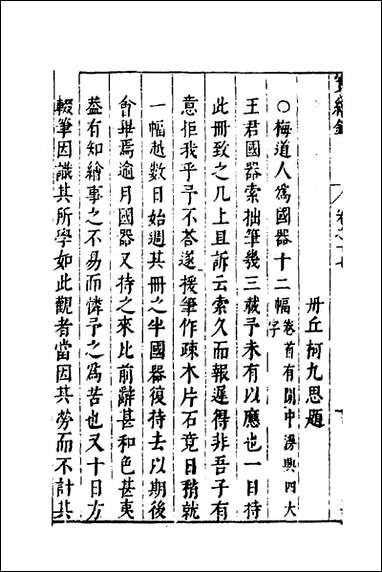 寶繪錄
卷之十七
丹丘柯九思題
○梅道人爲國器十二幅卷首有閒中漫興四大字
王君國器索拙筆幾三禩予未有以應也一日持
此冊致之几上且訴云索久而報遲得非吾子有
意拒我乎予不荅遂援筆作疎木片石竟日稍就
一幅越數日始週其冊之半國器復持去以期後
會畢焉逾月國器又持之來比前辭甚和色甚夷
葢有知繪事之不易而憐予之爲苦也又十日方
輟筆因識其所學如此觀者當因其勞而不計其